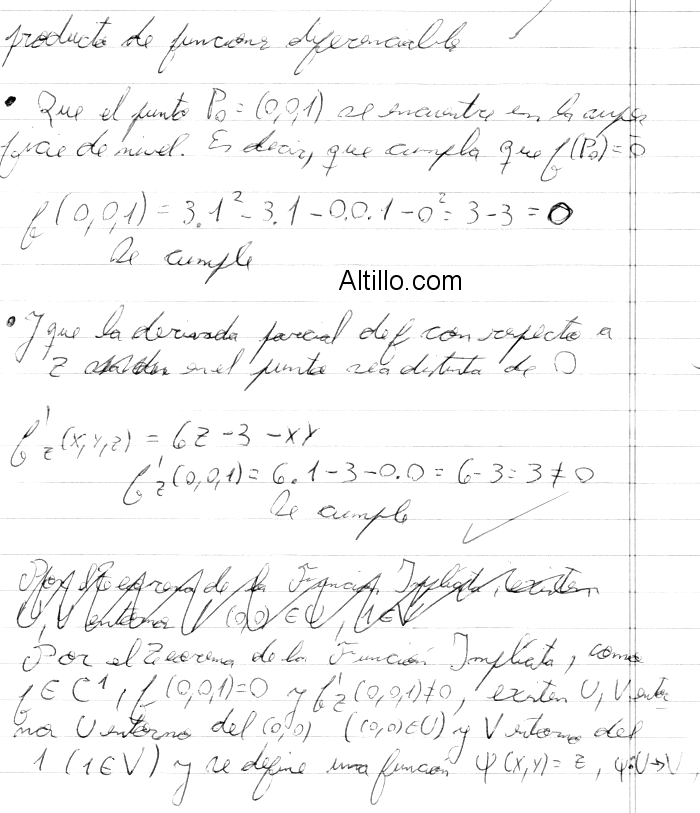 producto de funciones diferenciable
• Que el punto P₀ = (0,0,1) se encuentre en la super
ficie de nivel. Es decir, que cumpla que f(P₀) = 0
f(0,0,1) = 3.1² - 3.1 - 0.0.1 - 0² = 3 - 3 = 0
Se cumple
Altillo.com
• Y que la derivada parcial de f con respecto a
z en el punto sea distinta de 0
f'z(x,y,z) = 6z - 3 - xy
f'z(0,0,1) = 6.1 - 3 - 0.0 = 6 - 3 = 3 ≠ 0
Se cumple
Por el Teorema de la Función Implícita, existen
U, V entorno (0,0) ∈ U, 1 ∈ V
Por el Teorema de la Función Implícita, como
f ∈ C¹, f(0,0,1)=0 y f'z(0,0,1)≠0, existen U, V entor
nos U entorno del (0,0) ((0,0) ∈ U) y V entorno del
1 (1 ∈ V) y se define una función φ(x,y) = z, φ:U→V,